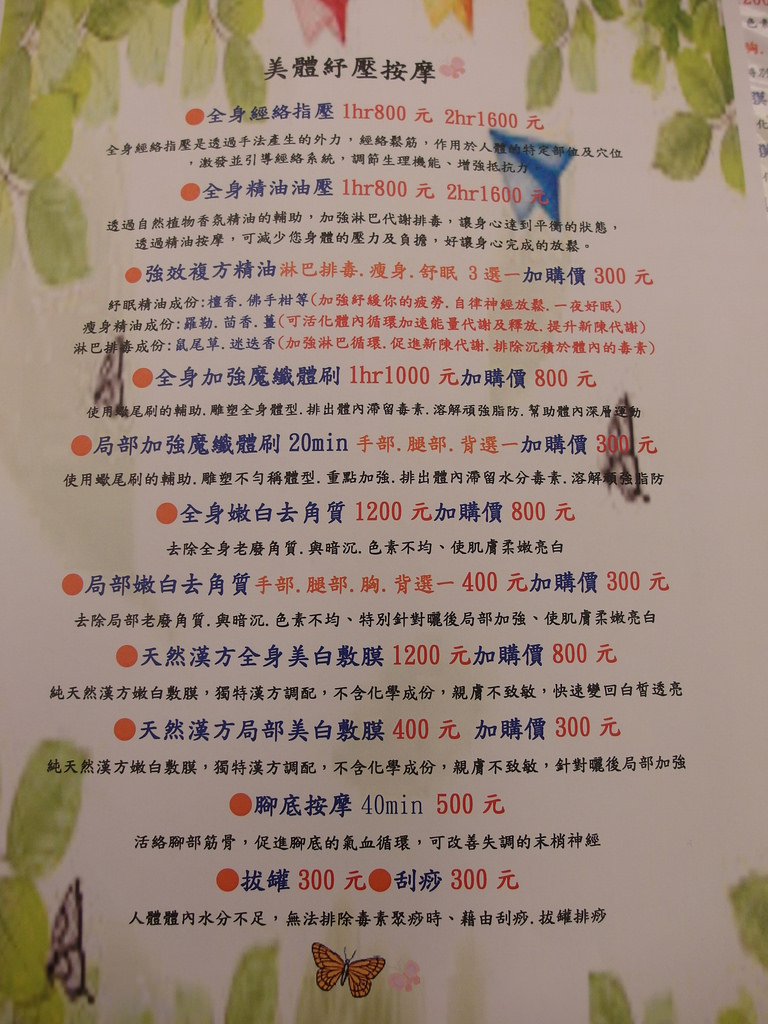 美體紓壓按摩
全身經絡指壓 1hr800 元 2hr1600 元
全身經絡指壓是透過手法產生的外力，經絡鬆筋，作用於人體的特定部位及穴位
，激發並引導經絡系統，調節生理機能、增強抵抗力。
全身精油油壓 1hr800 元 2hr1600 元
透過自然植物香氛精油的輔助，加強淋巴代謝排毒，讓身心達到平衡的狀態，
透過精油按摩，可減少您身體的壓力及負擔，好讓身心完成的放鬆。
強效複方精油淋巴排毒.瘦身.舒眠 3 選一加購價 300 元
紓眠精油成份:檀香.佛手柑等(加強紓緩你的疲勞.自律神經放鬆.一夜好眠)
瘦身精油成份:羅勒.茴香.薑(可活化體內循環加速能量代謝及釋放.提升新陳代謝)
淋巴排毒成份:鼠尾草.迷迭香(加強淋巴循環.促進新陳代謝.排除沉積於體內的毒素)
全身加強魔纖體刷 1hr1000 元加購價 800 元
使用蠍尾刷的輔助.雕塑全身體型.排出體內滯留毒素.溶解頑強脂肪.幫助體內深層運動
局部加強魔纖體刷 20min 手部.腿部.背選一加購價 300 元
使用蠍尾刷的輔助.雕塑不勻稱體型.重點加強.排出體內滯留水分毒素.溶解頑強脂肪
全身嫩白去角質 1200 元加購價 800 元
去除全身老廢角質.與暗沉.色素不均、使肌膚柔嫩亮白
局部嫩白去角質手部.腿部.胸.背選一 400 元加購價 300 元
去除局部老廢角質.與暗沉.色素不均、特別針對曬後局部加強、使肌膚柔嫩亮白
天然漢方全身美白敷膜 1200 元加購價 800 元
純天然漢方嫩白敷膜，獨特漢方調配，不含化學成份，親膚不致敏，快速變回白皙透亮
天然漢方局部美白敷膜 400 元 加購價 300 元
純天然漢方嫩白敷膜，獨特漢方調配，不含化學成份，親膚不致敏，針對曬後局部加強
腳底按摩 40min 500 元
活絡腳部筋骨，促進腳底的氣血循環，可改善失調的末梢神經
拔罐 300 元 刮痧 300 元
人體體內水分不足，無法排除毒素聚痧時、藉由刮痧.拔罐排痧